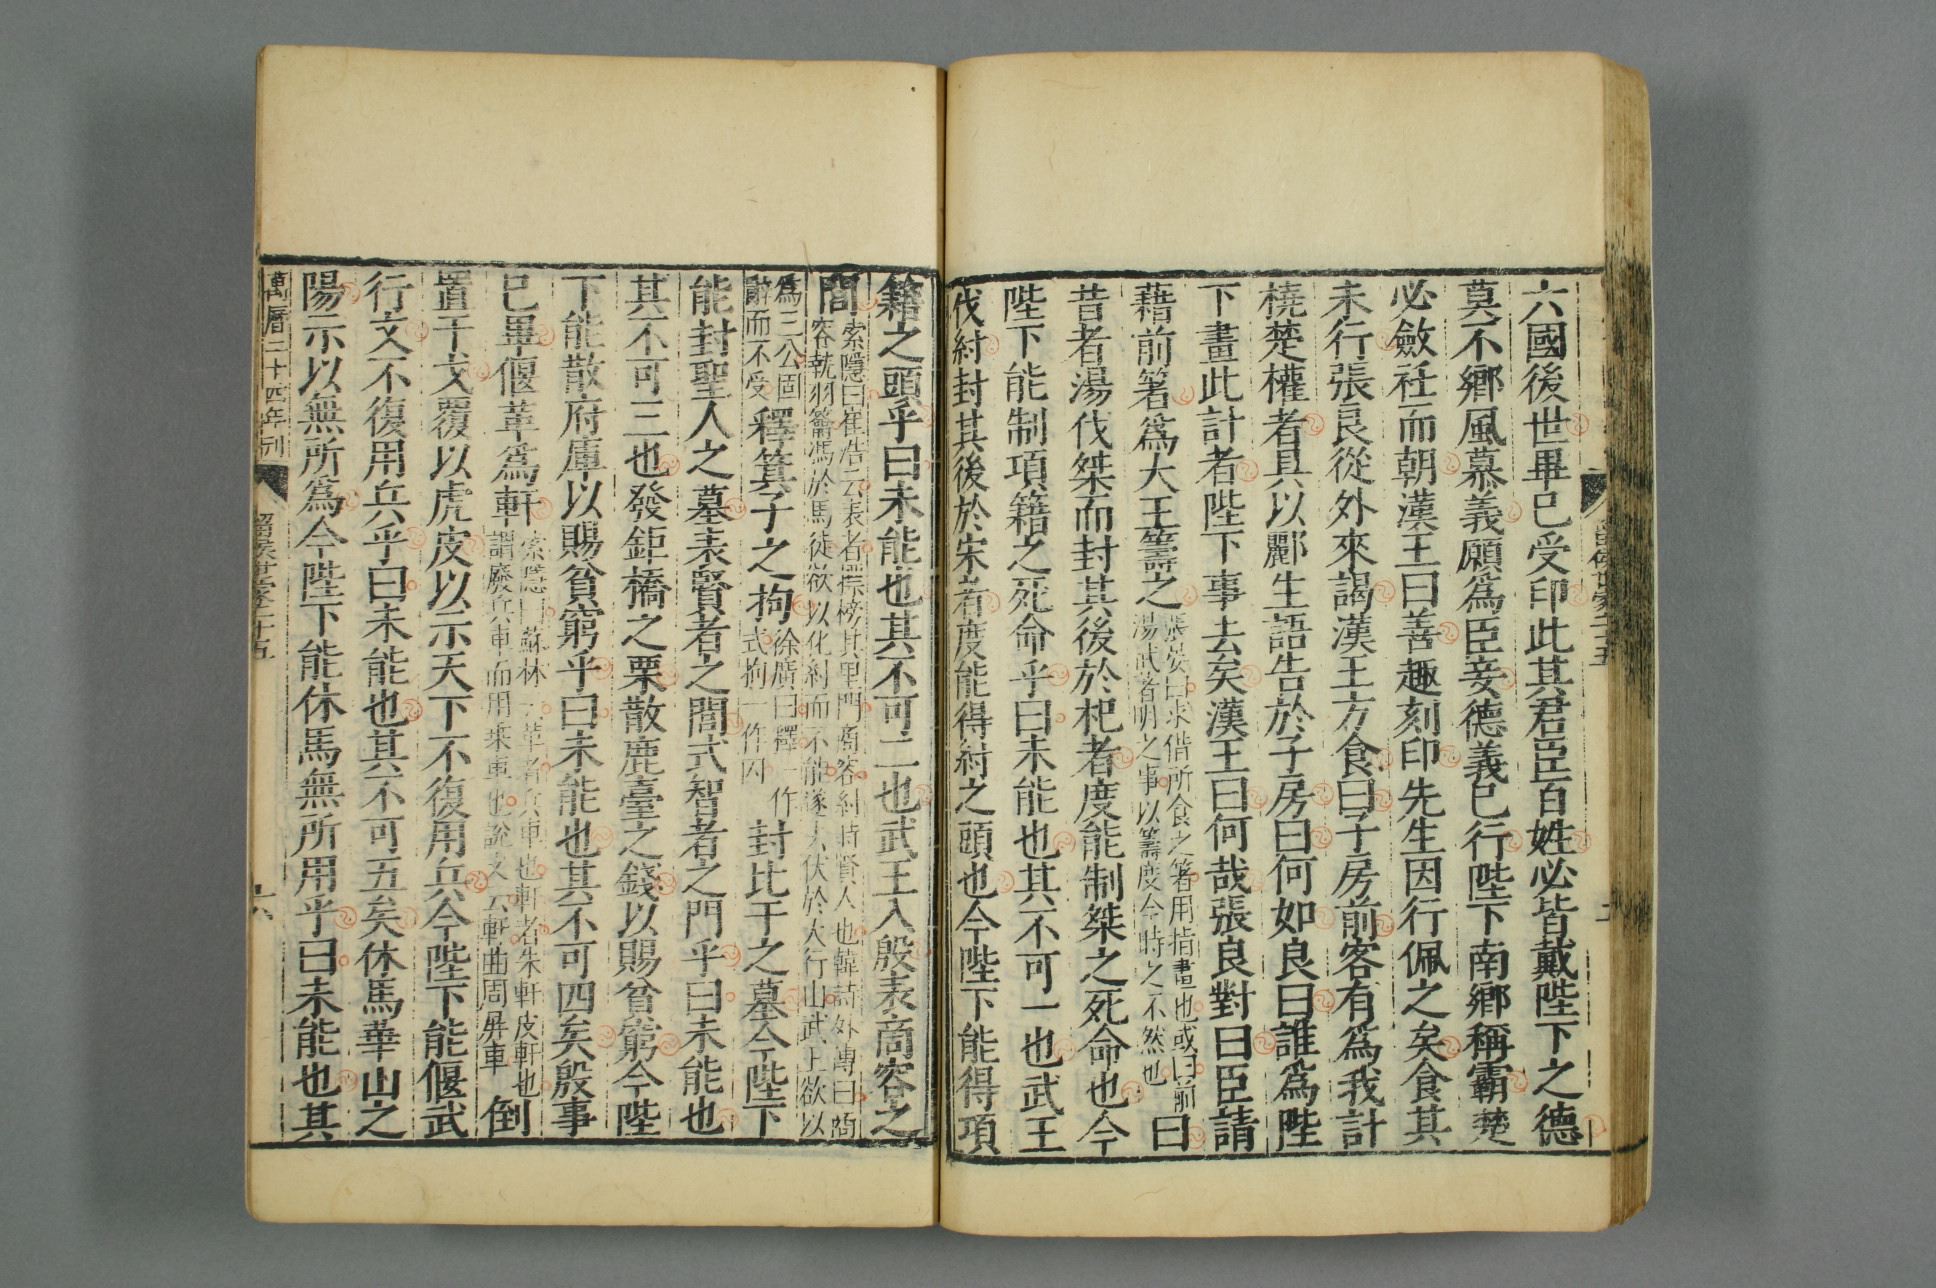 六國後世畢已受印此其君臣百姓必皆戴陛下之德
莫不鄉風慕義願爲臣妾德義已行陛下南鄉稱霸楚
必斂衽而朝漢王曰善趣刻印先生因行佩之矣食其
未行張良從外來謁漢王方食曰子房前客有爲我計
橈楚權者具以酈生語告於子房曰何如良曰誰爲陛
下畫此計者陛下事去矣漢王曰何哉張良對曰臣請
藉前箸爲大王籌之張晏曰求借所食之箸用指畫也或曰前湯武者明之事以籌度今時之不然也曰
昔者湯伐桀而封其後於杞者度能制桀之死命也今
陛下能制項籍之死命乎曰未能也其不可一也武王
伐紂封其後於宋者度能得紂之頭也今陛下能得項
留侯世家二十五
籍之頭乎曰未能也其不可二也武王入殷表商容之
閭索隱曰崔浩云表者標榜其里門商容紂時賢人也韓詩外傳曰商容執羽籥馮於馬徒欲以化紂而不能遂去伏於大行山武王欲以
爲三公固辭而不受釋箕子之拘徐廣曰釋一作式拘一作囚封比干之墓今陛下
能封聖人之墓表賢者之閭式智者之門乎曰未能也
其不可三也發鉅橋之粟散鹿臺之錢以賜貧窮今陛
下能散府庫以賜貧窮乎曰未能也其不可四矣殷事
已畢偃革爲軒索隱曰蘇林云革者兵車也軒者朱軒皮軒也謂廢兵車而用乘車也說文云軒曲周屏車倒
置干戈覆以虎皮以示天下不復用兵今陛下能偃武
行文不復用兵乎曰未能也其不可五矣休馬華山之
陽示以無所爲今陛下能休馬無所用乎曰未能也其
萬曆二十四年刊
留侯世家二十五
十六